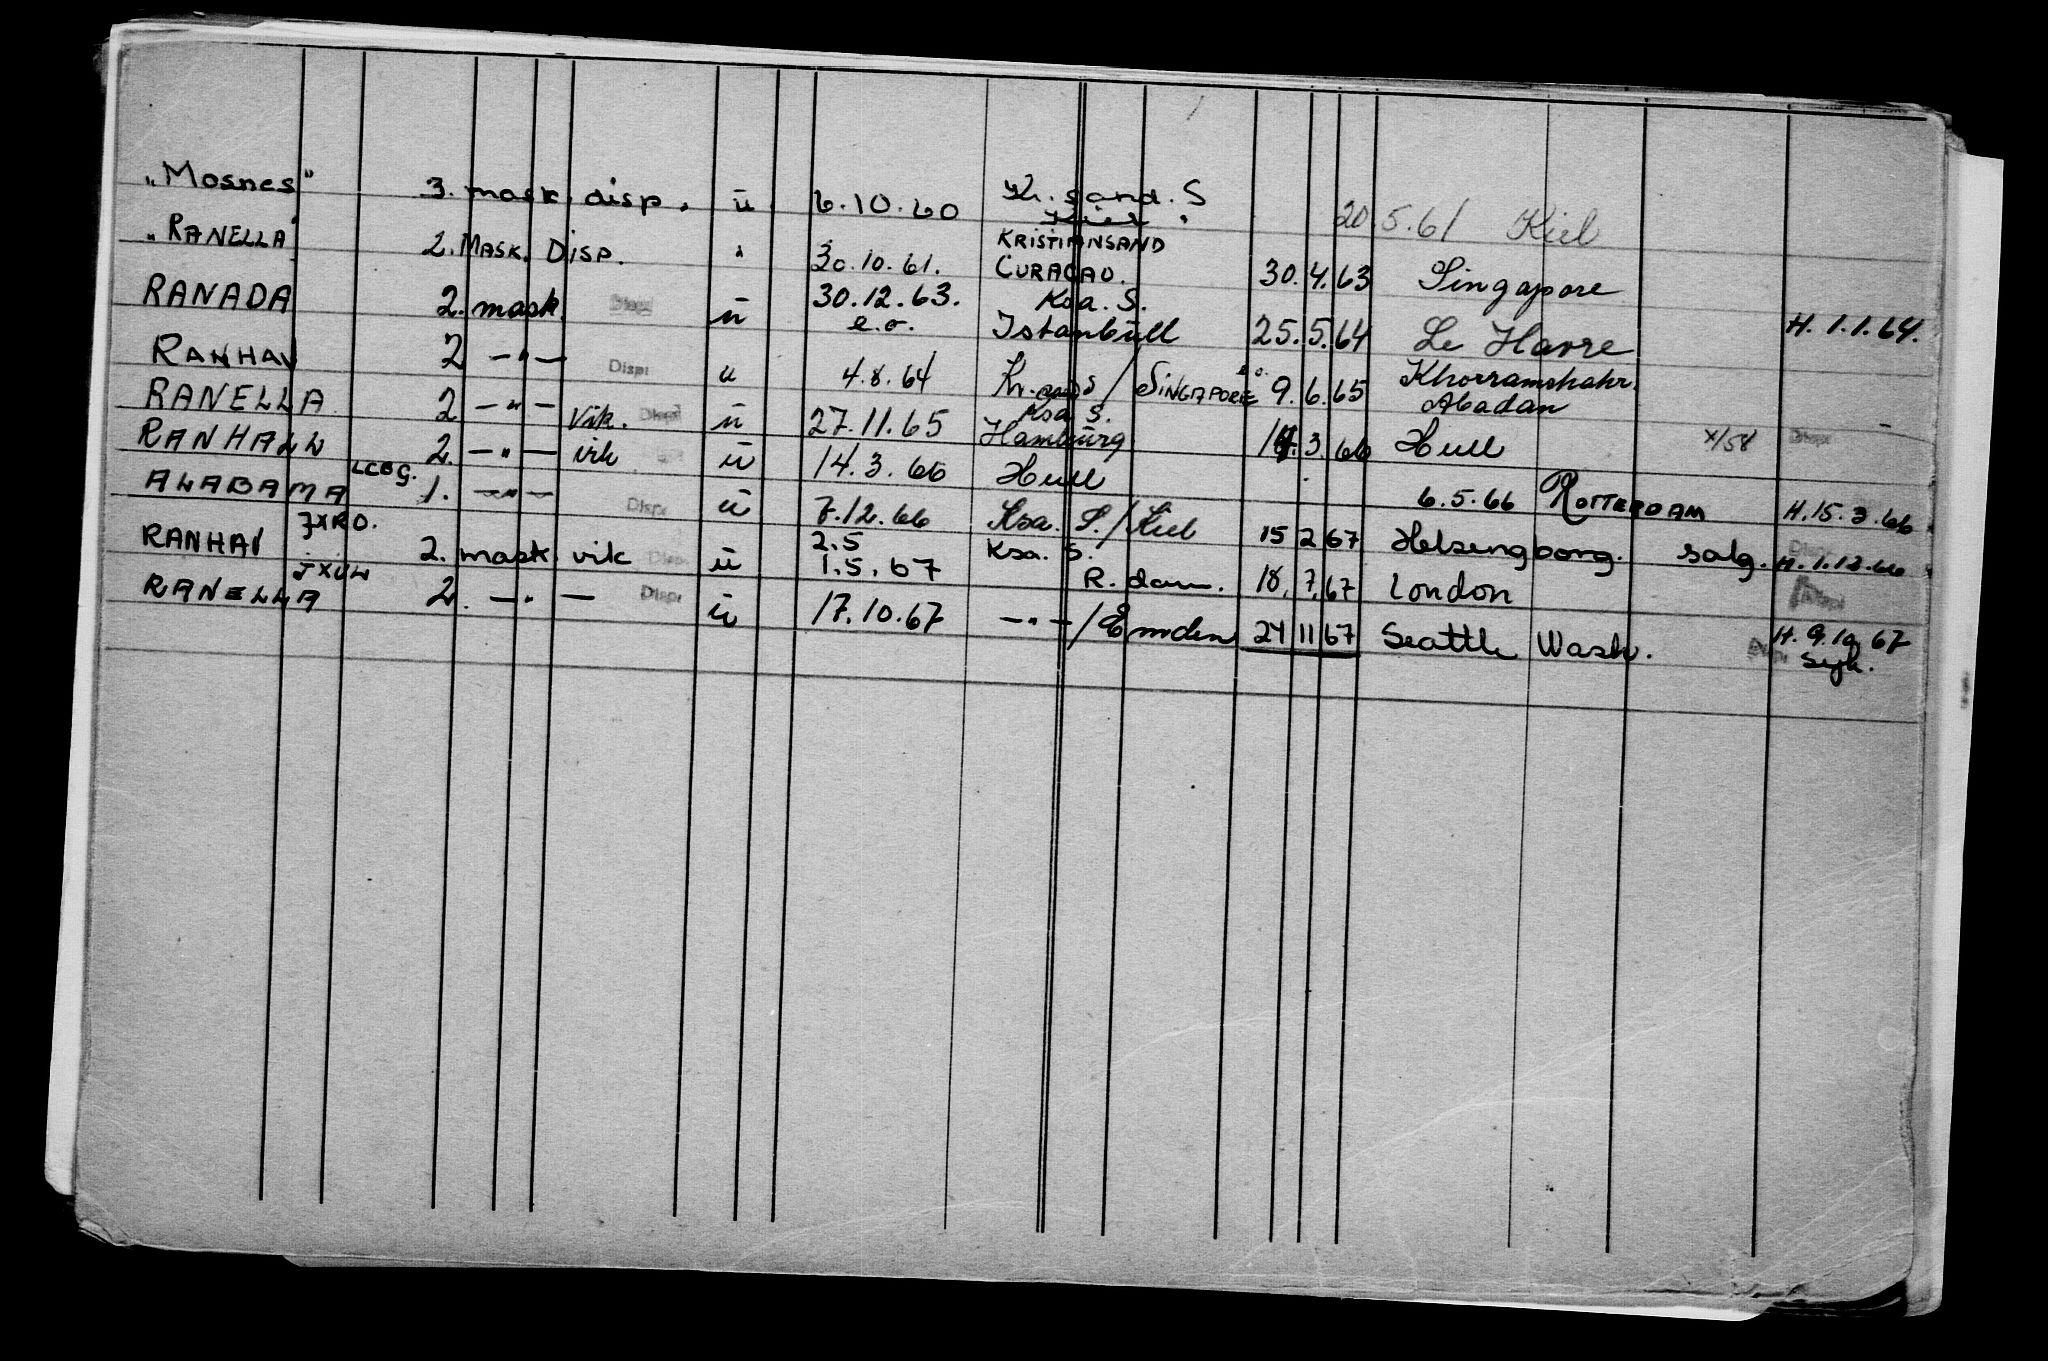 „Mosnes" 3. mask. disp. ü 6.10.60 Kr.sand. S Kiel. 20.5.61 Kiel
„RANELLA" 2. MASK. DISP. " 30.10.61. KRISTIANSAND CURACAO. 30.4.63 Singapore
RANADA 2. mask. Disp ü 30.12.63. e.o. Ksa. S. Istanbull 25.5.64 Le Havre H. 1.1.64.
RANHAV 2 —"— Disp u 4.8.64 Kr.sand S / SINGAPORE e.o. 9.6.65 Khorramshahr. Abadan
RANELLA 2 —"— Vik. Disp ü 27.11.65 Ksa S. Hamburg 14.3.66 Hull X/58 Disp
RANHALL 2. —"— vik ü 14.3.66 Hull 6.5.66 ROTTERDAM H.15.3.66
ALABAMA LCBG. 1. —"— Disp ü 7.12.66 Ksa. S. / Kiel 15 2 67 Helsingborg. salg. H.1.12.66
RANHAV JXRO. 2. mask. vik Disp ü 2.5 1.5.67 Ksa. S. R.dam. 18.7.67 London Disp
RANELLA JXUW 2. —"— Disp ü 17.10.67 —"— / Emden 24 11 67 Seattle Wash. Disp H. 9.10 67 syk.